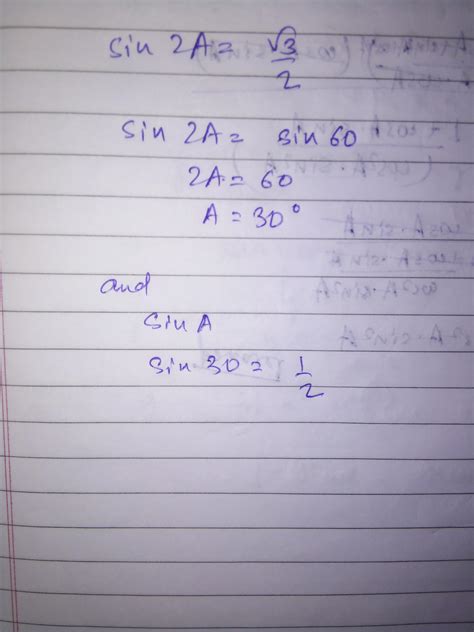 sin 2A = √3/2
sin 2A = sin 60
2A = 60
A = 30°
and
sin A
sin 30 = 1/2